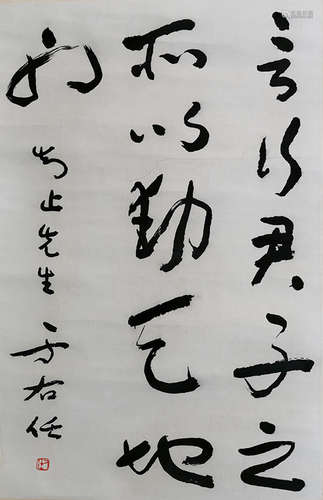 言行君子之
所以動天地
也
止先生
于右任